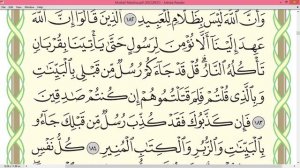 وَأَنَّ ٱللَّهَ لَيْسَ بِظَلَّامٍ لِّلْعَبِيدِ ١٨٢ ٱلَّذِينَ قَالُوٓا۟ إِنَّ ٱللَّهَ
عَهِدَ إِلَيْنَآ أَلَّا نُؤْمِنَ لِرَسُولٍ حَتَّىٰ يَأْتِيَنَا بِقُرْبَانٍ
تَأْكُلُهُ ٱلنَّارُ ۗ قُلْ قَدْ جَآءَكُمْ رُسُلٌ مِّن قَبْلِى بِٱلْبَيِّنَـٰتِ
وَبِٱلَّذِى قُلْتُمْ فَلِمَ قَتَلْتُمُوهُمْ إِن كُنتُمْ صَـٰدِقِينَ
١٨٣ فَإِن كَذَّبُوكَ فَقَدْ كُذِّبَ رُسُلٌ مِّن قَبْلِكَ جَآءُو
بِٱلْبَيِّنَـٰتِ وَٱلزُّبُرِ وَٱلْكِتَـٰبِ ٱلْمُنِيرِ ١٨٤ كُلُّ نَفْسٍ